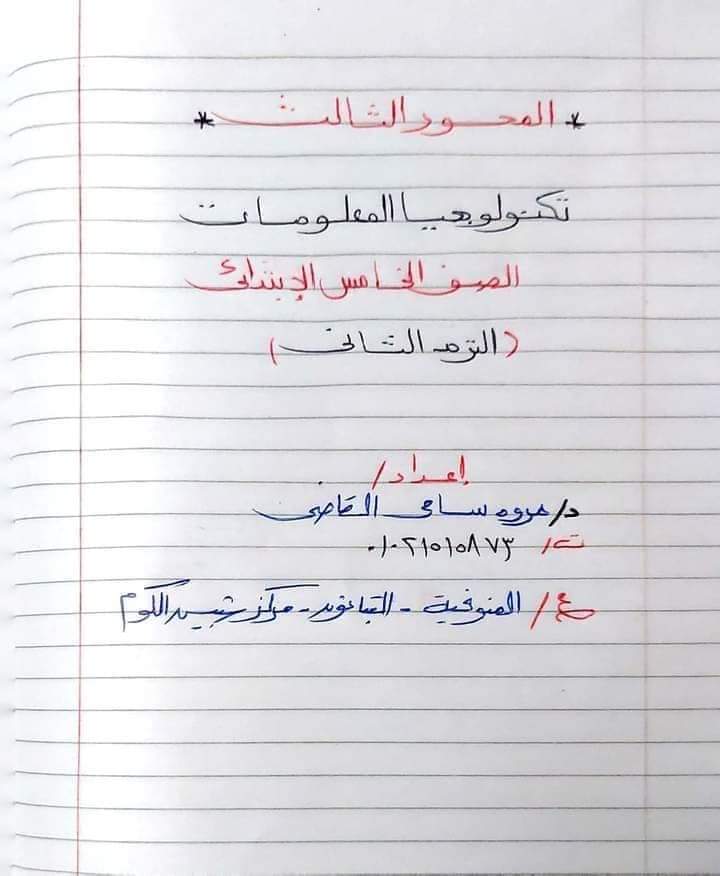 * المحور الثالث *
تكنولوجيا المعلومات
الصف الخامس الإبتدائى
( الترم الثانى )
إعداد /
د/ مروه سامى القاضى
ت/ ٠١٠٢١٥١٥٨٧٣
ع/ المنوفية - - مركز شبين الكوم